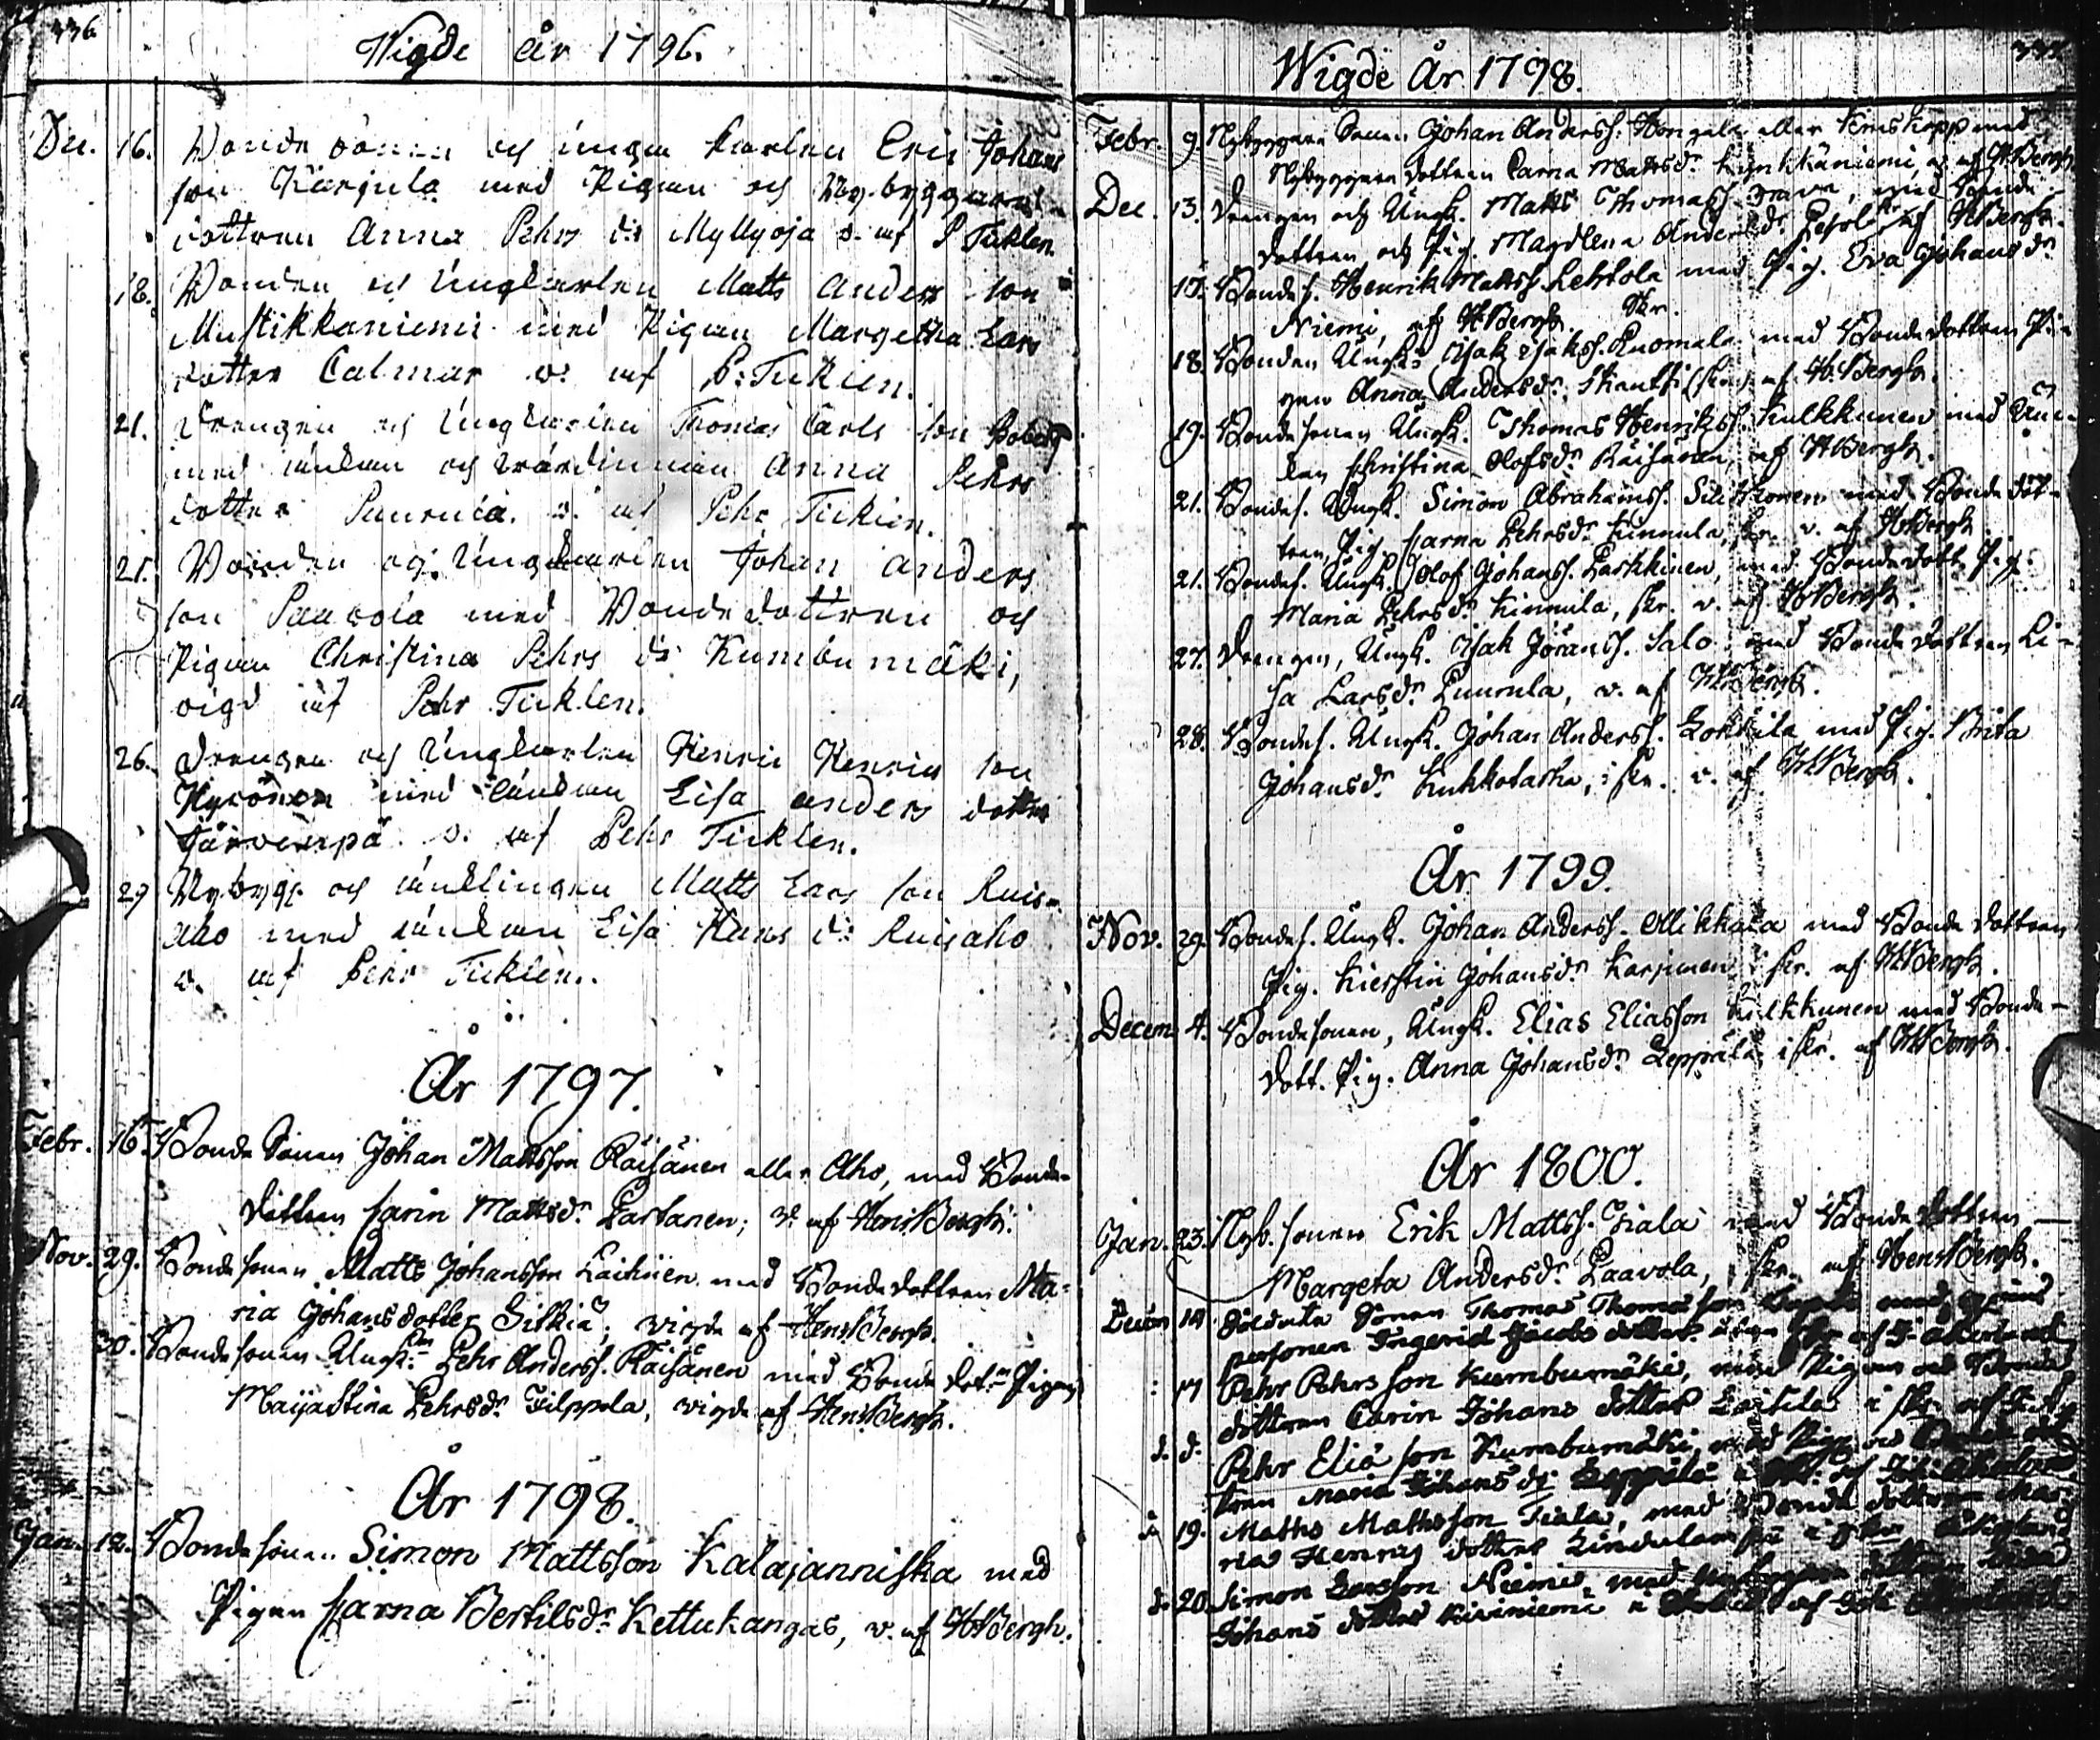 336
Wigde år 1796.
Dec. 16. Bonde sonen och unga karlen Eric Johans
son Karjula med Pigan och Nybyggare
dottren Anna Pehrs dr Myllyoja v. af P Ticklen.
18. Bonden och Ungkarlen Matts Anders son
Mustikkaniemi med Pigan Margetha Lars
dotter Calmar v. af P. Ticklen.
21. Drengen och Ungkarlen Thomas Carls son
med änkan och värdinnan Anna Pehrs
dotter v. af Pehr Ticklen.
21. Bonden och Ungkarlen Johan Anders
son Paavola med Bonde dottren och
Pigan Christina Pehrs dr Kumbumäki,
vigd af Pehr Ticklen.
26. Drengen och Ungkarlen Henric Henrics son
Hyvönen med änkan Lisa Anders dotter
Järvenpä v. af Pehr Ticklen.
29 Nybygg. och änklingen Matts Lars son Ruis-
aho med änkan Lisa Hans dr Ruisaho
v. af Pehr Ticklen.
År 1797.
Febr. 16. Bonde Sonen Johan Mattsson Räisänen eller Aho, med Bonde-
dottren Carin Mattsdr Partanen; v. af HenrBergh.
Nov. 29. Bondesonen Matts Johansson Laihinen med Bondedottren Ma-
ria Johansdotter Silkiä; vigde af HenrBergh.
30. Bondesonen Ungk:n Pehr Anderss. Räisänen med Bonde Dot:n Pigan
Maija Stina Pehrsdr Filppola, vigde af HenrBergh.
År 1798.
Jan. 12. Bondesonen Simon Mattsson Kalajanniska med
Pigan Carna Bertilsdr Kettukangas, v. af HBergh.
Wigde År 1798.
Febr. 9. Nybyggare Sonen Johan Anderss. eller med
Nybyggare dottren Carna Mattsdr v. af HBergh.
Dec. 13. Drengen och Ungk. Matts Thomass. med Bonde
dottren och Pig. Magdlena Andersdr af HBergh.
17. Bondes. Henrik Matts. Lehtola med Pig. Eva Johansdr
Niemi, af HBergh. Skr.
18. Bonden Ungk. Isak Isakss. Luomala med Bondedottren Pi-
gan Anna Andersdr af HBergh.
19. Bondesonen Ungk. Thomas Henrikss. Kulkkunen med Än-
kan Christina Olofsdr Räisänen af HBergh.
21. Bondes. Ungk. Simon Abrahamss. med Bonde dot-
tren, Pig. Carna Pehrsdr Kinnula, skr. v. af HBergh
21. Bondes. Ungk. Olof Johanss. Parkkinen, med Bondedott. Pig.
Maria Pehrsdr Kinnula, skr. v. af HBergh.
27. Drengen, Ungk. Isak Jöranss. Salo med Bonde dottren Li-
sa Larsdr Puurula, v. af HBergh.
28. Bondes. Ungk. Johan Anderss. Lokkila med Pig. Brita
Johansdr Kuhkolahn, i skr. v. af HBergh.
År 1799.
Nov. 29. Bondes. Ungk. Johan Anderss. Ollikkala med Bonde dottren
Pig. Kierstin Johansdr Karjunen i skr. af HBergh.
Decem. 4. Bondesonen, Ungk. Elias Eliasson Kulkkunen med Bonde-
dott. Pig. Anna Johansdr Leppälä i skr. af HBergh.
År 1800.
Jan. 23. Nyb. sonen Erik Mattss. Tiala med Bonde dottren
Margeta Andersdr Paavola, i skr. af HenrBergh.
Decem Soldate Sonen Thomas Thomas son med
personen Ingerid Jacobs dotter
: 17 Pehr Pehrs son Kumbumäki, med Pigan och Bonde
dottren Carin Johans dotter Laitila i skr. af
d. d. Pehr Elia son Kumbumäki, med Pig. och
tren Maria Johans dr Leppälä
d. 19. Matts Mattsson Tiala, med Bonde dottren Ma-
ria Henrics dotter
d. 20. Simon Larsson Niemi, med dottren
Johans dotter Kiviniemi